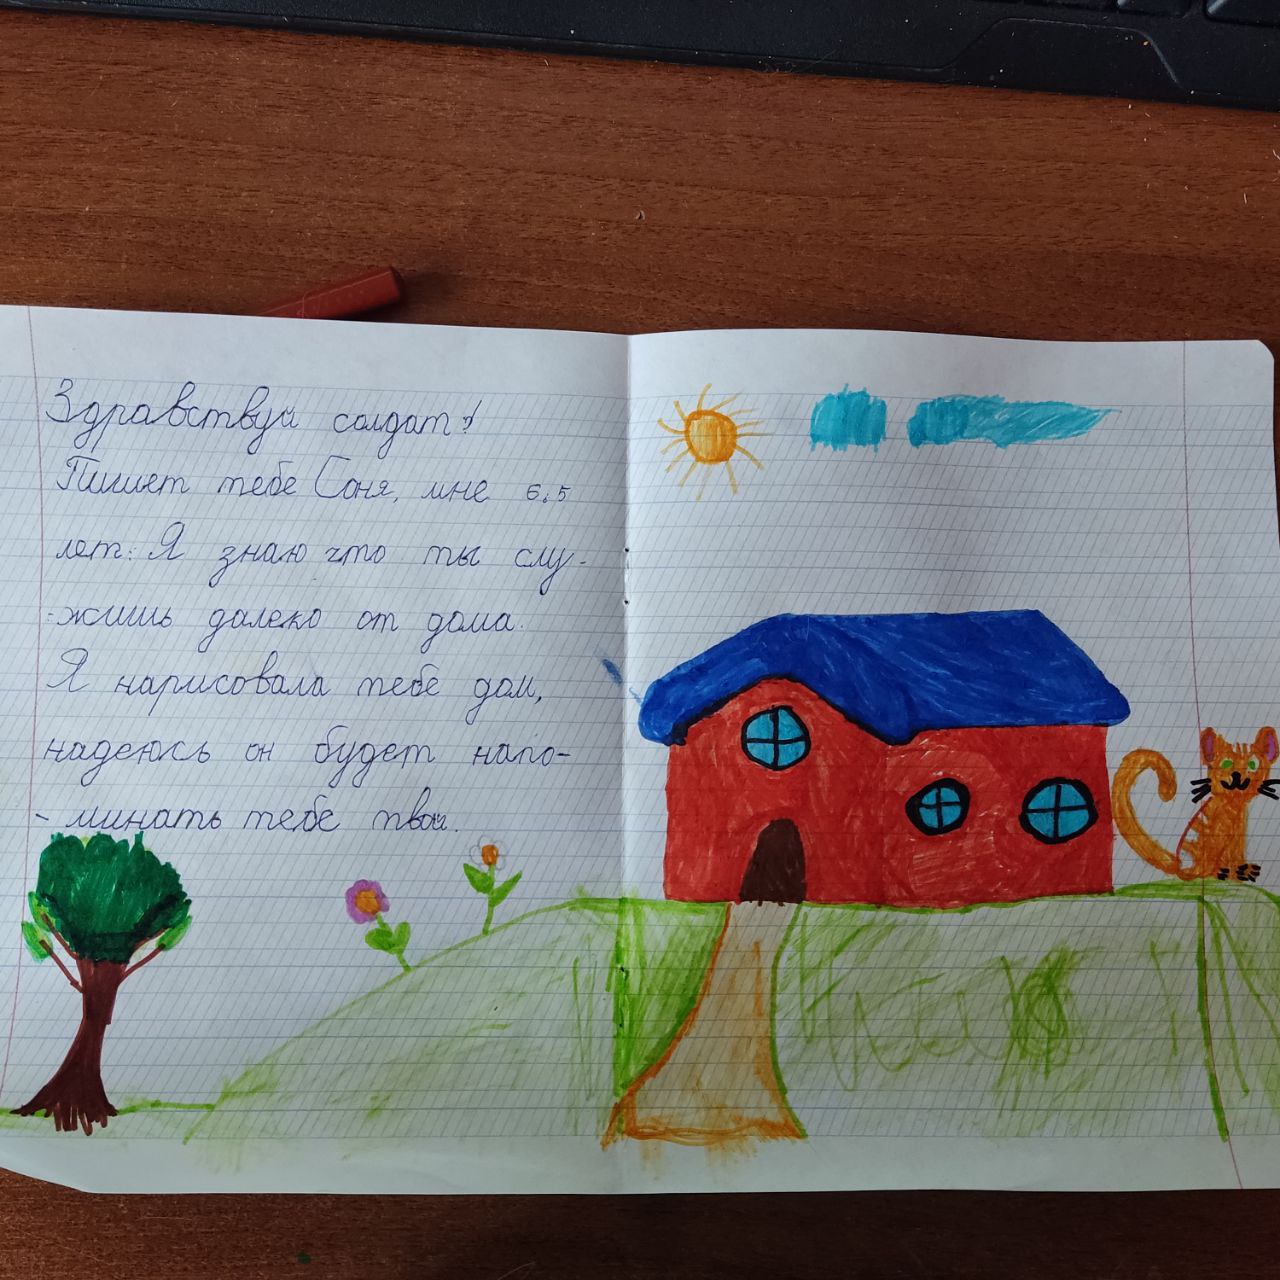 Здравствуй солдат!
Пишет тебе Соня, мне 6,5
лет. Я знаю что ты слу-
-жишь далеко от дома.
Я нарисовала тебе дом,
надеюсь он будет напо-
- минать тебе твой.